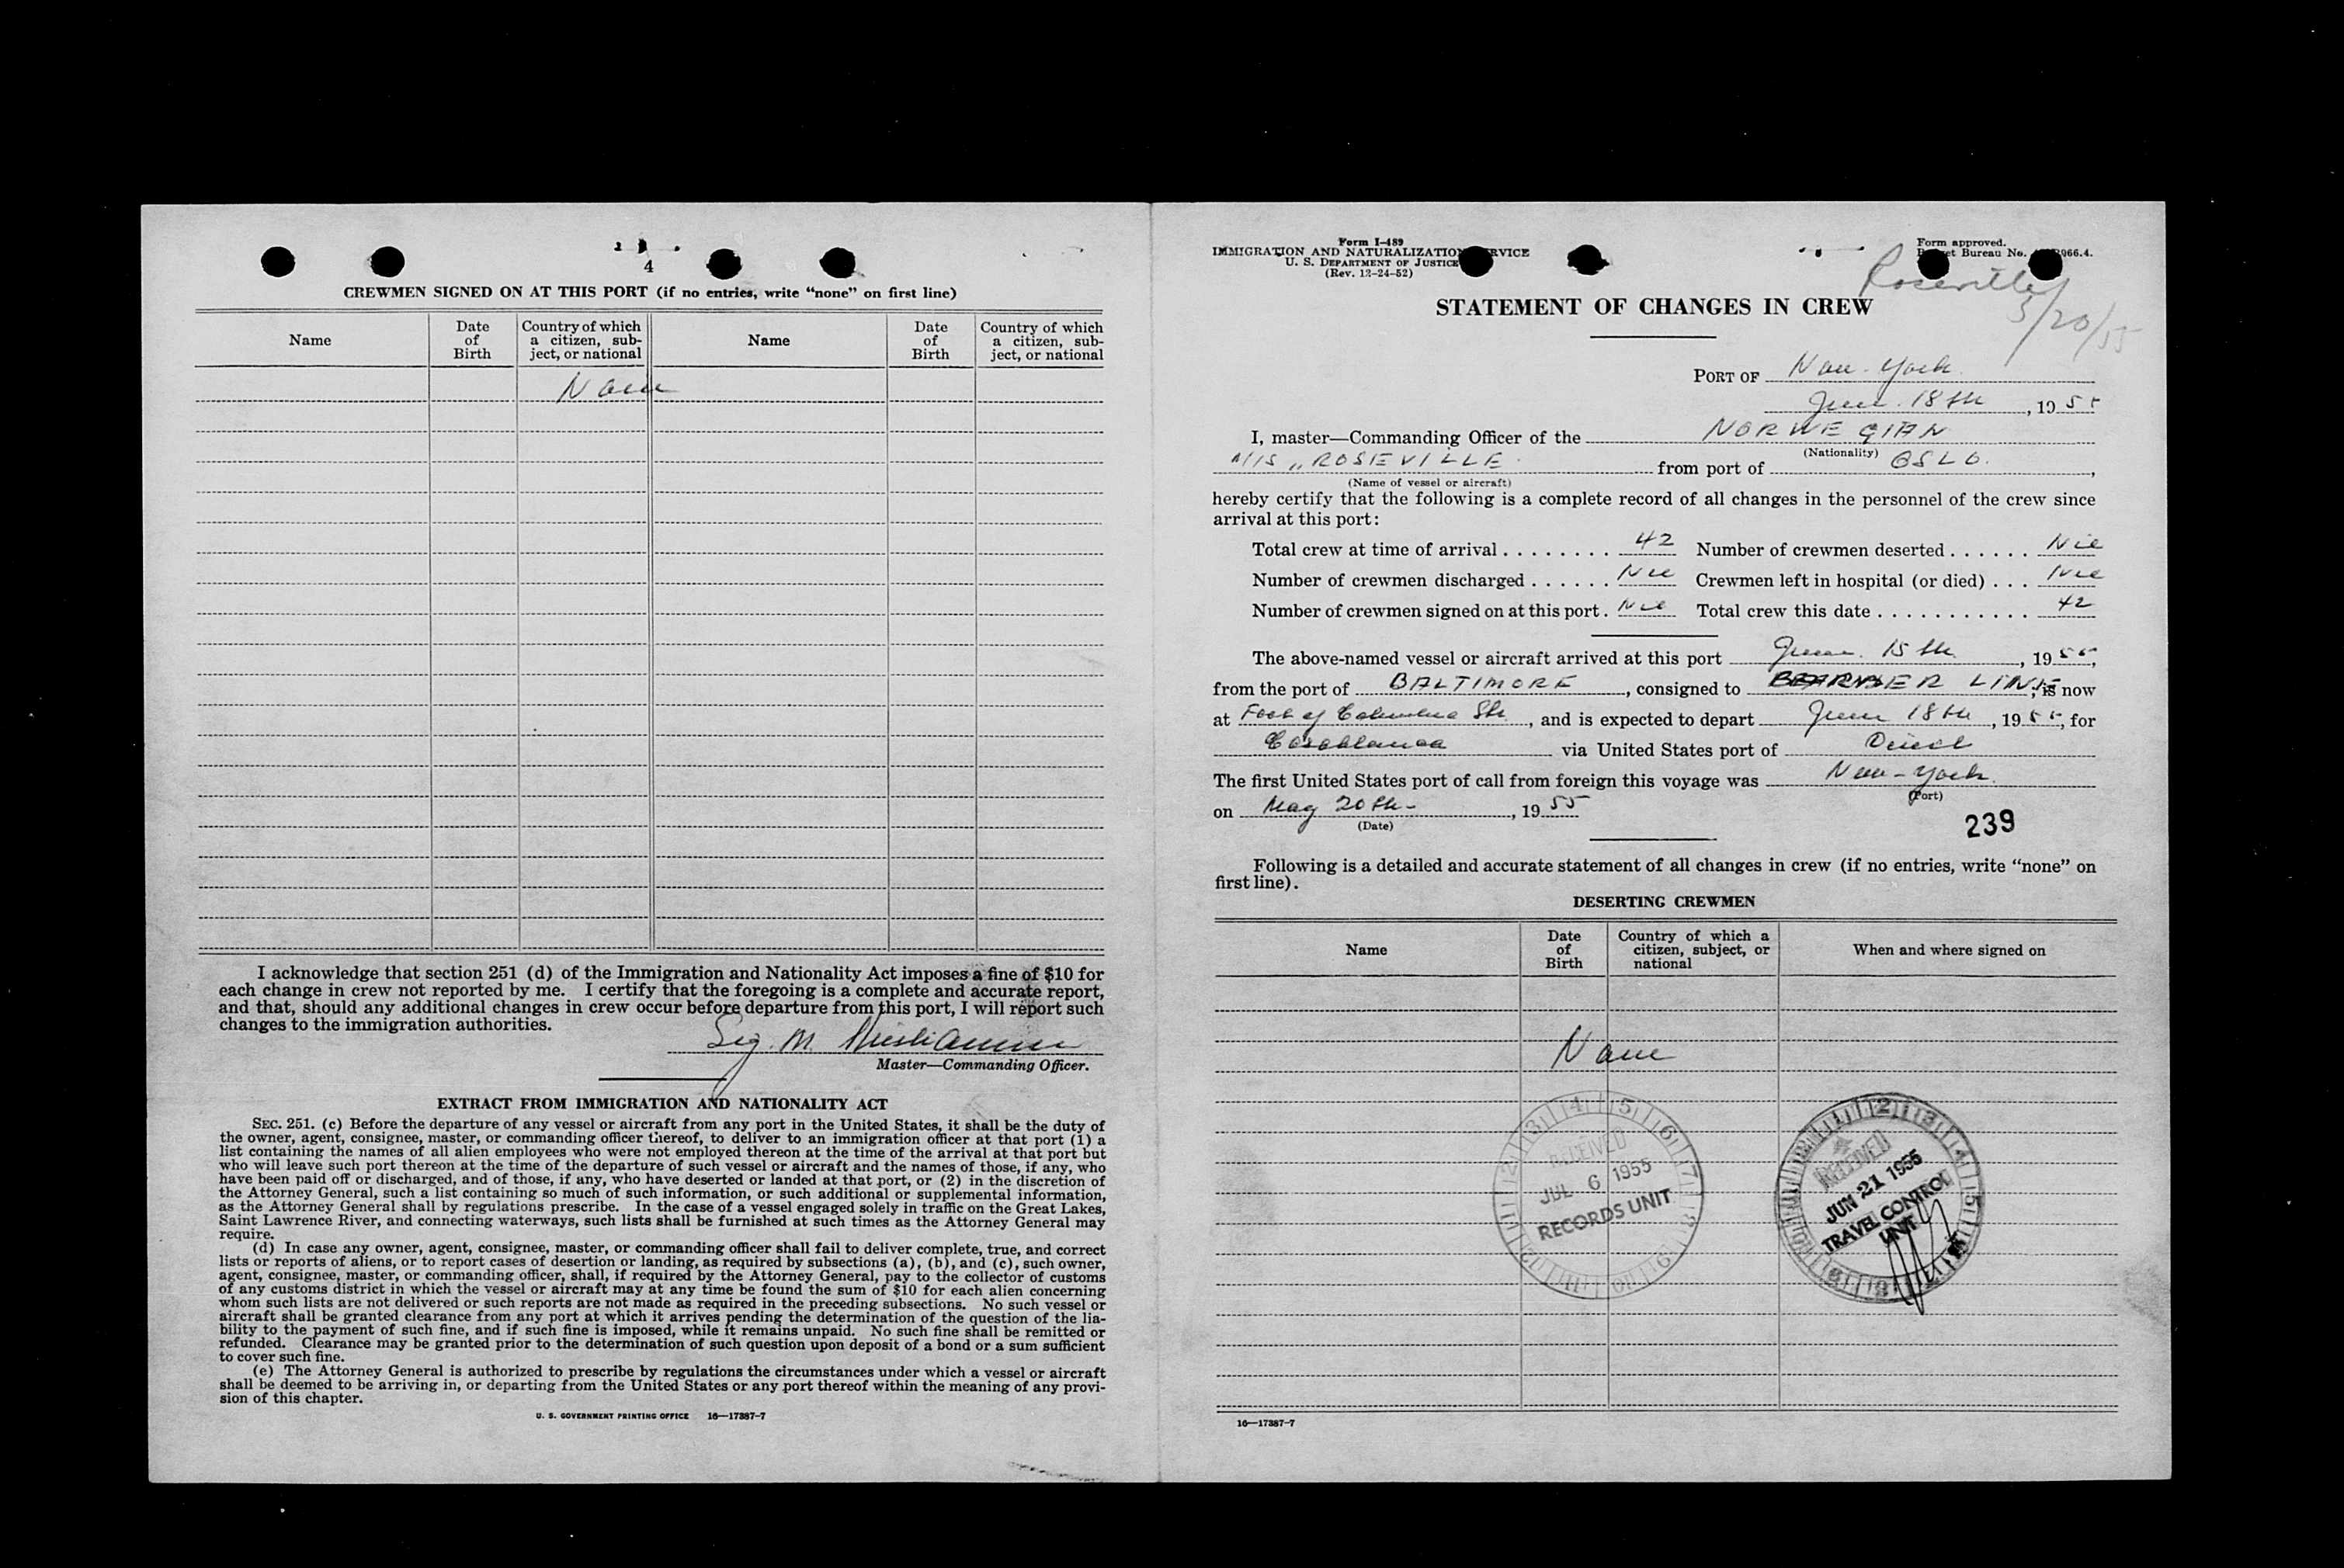 4
CREWMEN SIGNED ON AT THIS PORT (if no entries, write “none” on first line)
Name
Date of Birth
Country of which a citizen, subject, or national
Name
Date of Birth
Country of which a citizen, subject, or national
None
I acknowledge that section 251 (d) of the Immigration and Nationality Act imposes a fine of $10 for
each change in crew not reported by me. I certify that the foregoing is a complete and accurate report,
and that, should any additional changes in crew occur before departure from this port, I will report such
changes to the immigration authorities.
Sig. M.
Master—Commanding Officer.
EXTRACT FROM IMMIGRATION AND NATIONALITY ACT
SEC. 251. (c) Before the departure of any vessel or aircraft from any port in the United States, it shall be the duty of
the owner, agent, consignee, master, or commanding officer thereof, to deliver to an immigration officer at that port (1) a
list containing the names of all alien employees who were not employed thereon at the time of the arrival at that port but
who will leave such port thereon at the time of the departure of such vessel or aircraft and the names of those, if any, who
have been paid off or discharged, and of those, if any, who have deserted or landed at that port, or (2) in the discretion of
the Attorney General, such a list containing so much of such information, or such additional or supplemental information,
as the Attorney General shall by regulations prescribe. In the case of a vessel engaged solely in traffic on the Great Lakes,
Saint Lawrence River, and connecting waterways, such lists shall be furnished at such times as the Attorney General may
require.
(d) In case any owner, agent, consignee, master, or commanding officer shall fail to deliver complete, true, and correct
lists or reports of aliens, or to report cases of desertion or landing, as required by subsections (a), (b), and (c), such owner,
agent, consignee, master, or commanding officer, shall, if required by the Attorney General, pay to the collector of customs
of any customs district in which the vessel or aircraft may at any time be found the sum of $10 for each alien concerning
whom such lists are not delivered or such reports are not made as required in the preceding subsections. No such vessel or
aircraft shall be granted clearance from any port at which it arrives pending the determination of the question of the lia-
bility to the payment of such fine, and if such fine is imposed, while it remains unpaid. No such fine shall be remitted or
refunded. Clearance may be granted prior to the determination of such question upon deposit of a bond or a sum sufficient
to cover such fine.
(e) The Attorney General is authorized to prescribe by regulations the circumstances under which a vessel or aircraft
shall be deemed to be arriving in, or departing from the United States or any port thereof within the meaning of any provi-
sion of this chapter.
U. S. GOVERNMENT PRINTING OFFICE 16—17387-7
Form I-489
IMMIGRATION AND NATURALIZATION SERVICE
U. S. DEPARTMENT OF JUSTICE
(Rev. 12-24-52)
Form approved.
Budget Bureau No. 966.4.
Roseville
5/20/55
STATEMENT OF CHANGES IN CREW
PORT OF New-York
June 18th, 1955
I, master—Commanding Officer of the NORWEGIAN
(Nationality)
M/S „ROSEVILLE from port of OSLO.,
(Name of vessel or aircraft)
hereby certify that the following is a complete record of all changes in the personnel of the crew since
arrival at this port:
Total crew at time of arrival . . . . . . . . 42 Number of crewmen deserted . . . . . . Nil
Number of crewmen discharged . . . . . . Nil Crewmen left in hospital (or died) . . . Nil
Number of crewmen signed on at this port . Nil Total crew this date . . . . . . . . . . . 42
The above-named vessel or aircraft arrived at this port June 15th, 1955,
from the port of BALTIMORE, consigned to BARBER LINE, is now
at Foot of Columbia Str, and is expected to depart June 18th, 1955, for
Casablanca via United States port of Direct
The first United States port of call from foreign this voyage was New-York.
(Port)
on May 20th-, 1955
(Date)
239
Following is a detailed and accurate statement of all changes in crew (if no entries, write “none” on
first line).
DESERTING CREWMEN
Name
Date of Birth
Country of which a citizen, subject, or national
When and where signed on
None
RECEIVED
JUL 6 1955
RECORDS UNIT
RECEIVED
JUN 21 1955
TRAVEL CONTROL
UNIT
16—17387-7